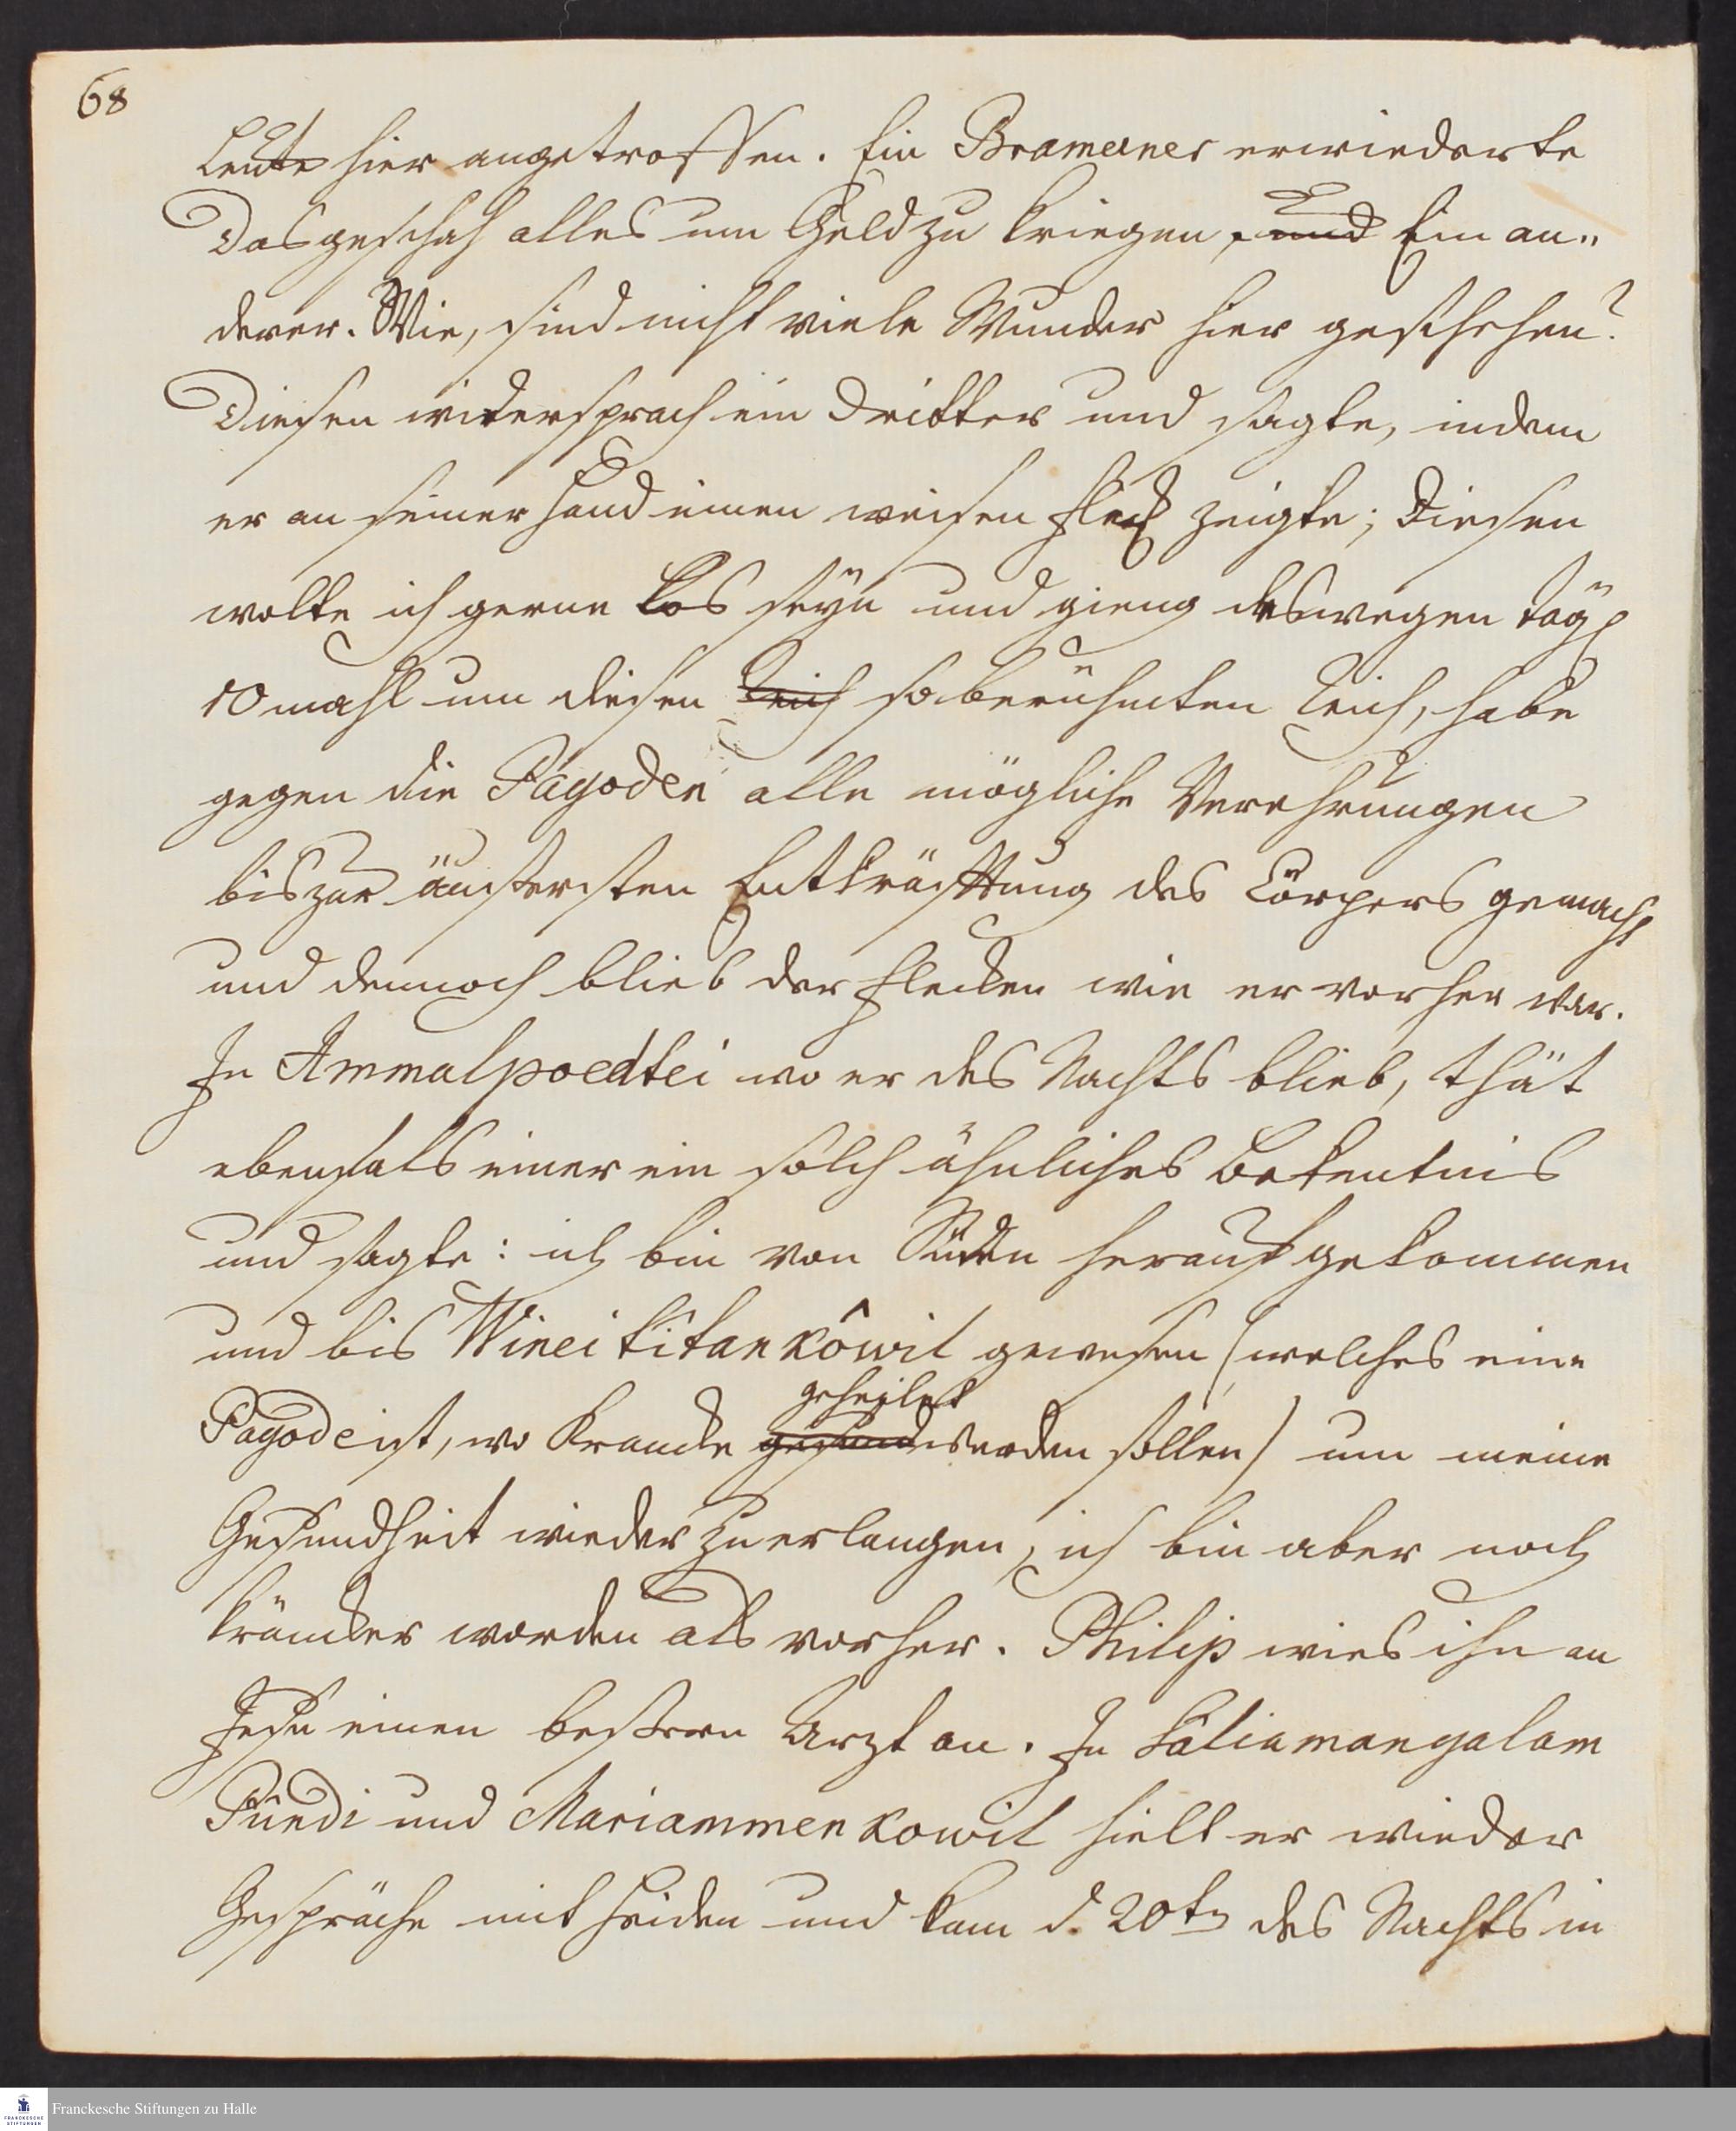 68
Leute hier angetroffen. Ein Bramaner erwiederte
Das geschah alles um Geld zu kriegen, und Ein an„
derer. Wie, sind nicht viele Wunder hier geschehen?
Diesen widersprach ein Dritter und sagte, indem
er an seiner Hand einen weisen Fleck zeigte; Diesen
wolte ich gerne los seyn und gieng deswegen tägl
10 mahl um diesen Teich so berühmten Teich, habe
gegen die Pagoden alle mögliche Verehrungen
bis zur äussersten Entkräfftung des Cörpers gemacht
und dennoch blieb der Flecken wie er vorher war.
In Ammalpoedtei wo er des Nachts blieb, thät
ebenfals einer ein solch ähnliches Bekentnis
und sagte: ich bin von Süden herauf gekommen
und bis Wineititankôwil gewesen (welches eine
geheilet
Pagode ist, wo Krancke gesund werden sollen) um meine
Gesundheit wieder zu erlangen, ich bin aber noch
kräncker worden als vorher. Philip wies ihn an
Jesu einen bessern Arzt an. In Sâliamangalam
Pûndi und Mariammenkowil hielt er wieder
Gespräche mit Heiden und kam d. 20tn des Nachts in
Franckesche Stiftungen zu Halle
FRANCKESCHE STIFTUNGEN